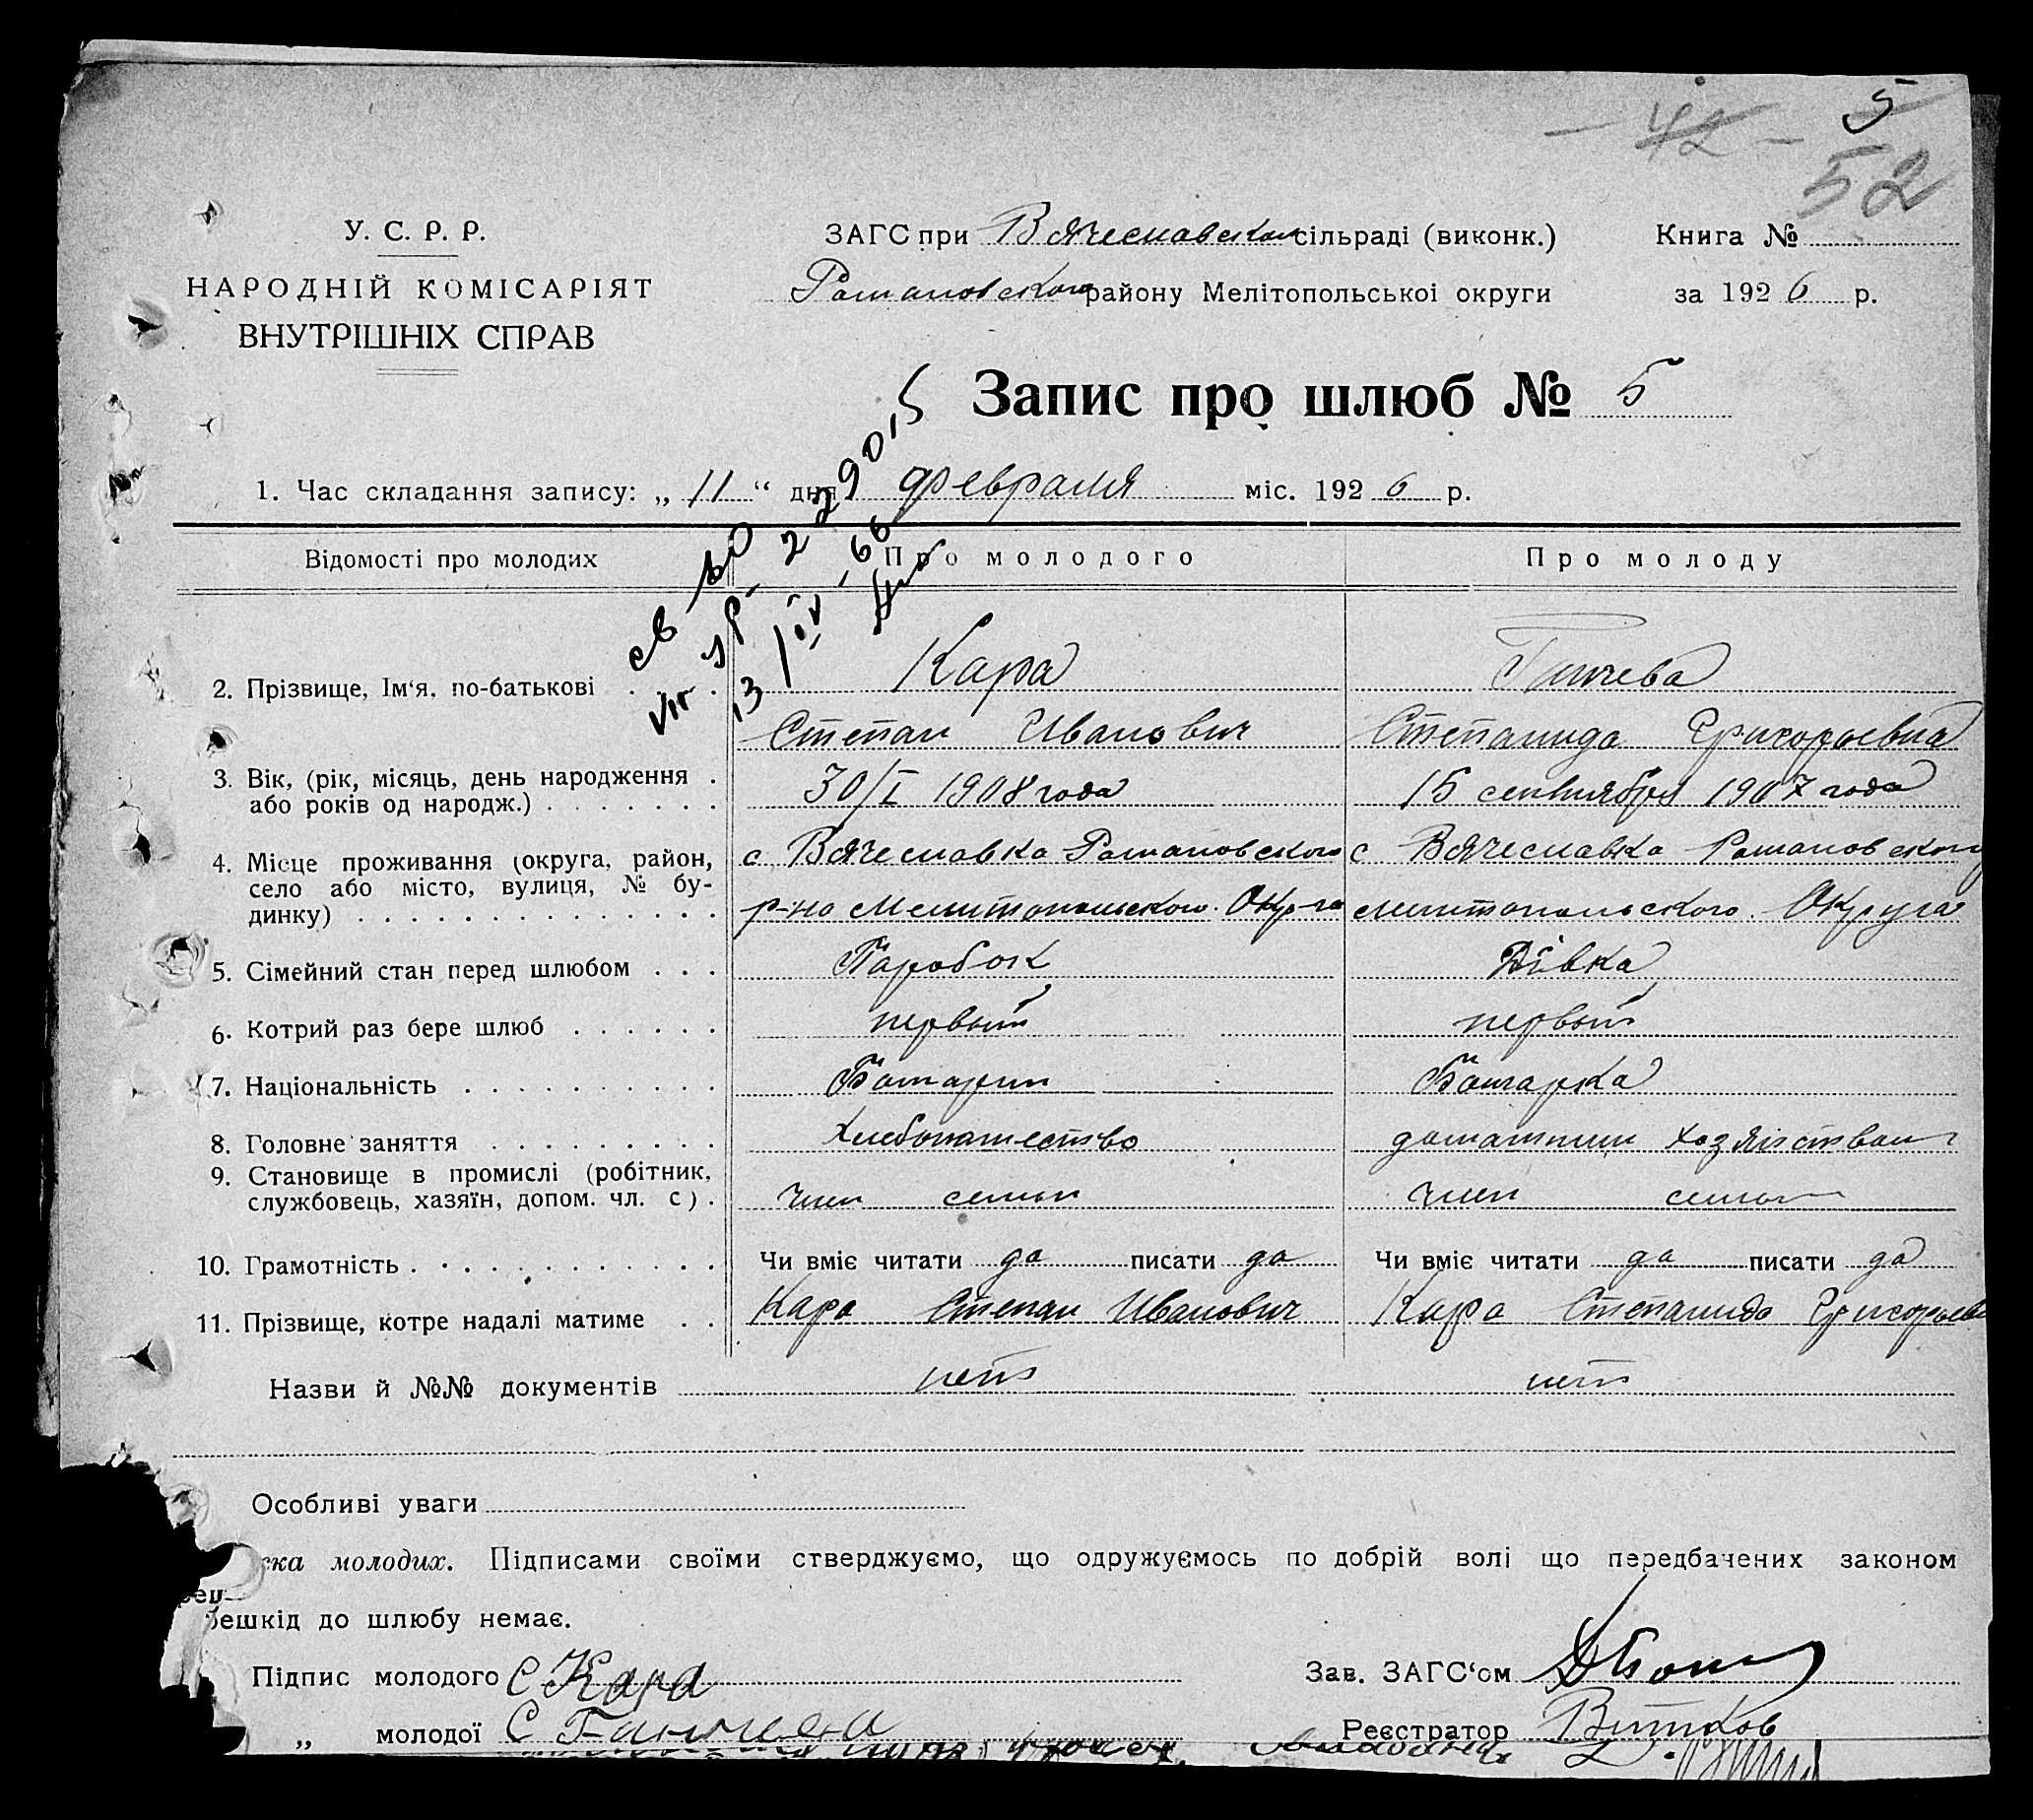 5
- 42 -
52
У. С. Р. Р.
НАРОДНІЙ КОМІСАРІЯТ
ВНУТРІШНІХ СПРАВ
ЗАГС при Вячеславском сільраді (виконк.)
Романовского району Мелітопольської округи
Книга №
за 1926 р.
Запис про шлюб № 5
1. Час складання запису: „ 11 “ дня февраля міс. 1926 р.
Відомості про молодих Про молодого Про молоду
2. Прізвище, Ім‘я, по-батькові . . . Кара
Степан Иванович Степанида Григорьевна
3. Вік, (рік, місяць, день народження .
або років од народж.) . . . . . . . 30/I 1908 года 15 сентября 1907 года
4. Місце проживання (округа, район,
село або місто, вулиця, № бу-
динку) . . . . . . . . . . . . . .
с Вячеславка Романовского
р-на Мелитопольского Окр-га
с Вячеславка Романовского
Мелитопольского Округа
5. Сімейний стан перед шлюбом . . . Паробок Дівка
6. Котрий раз бере шлюб . . . . . . первый первый
7. Національність . . . . . . . . . . Болгарин Болгарка
8. Головне заняття . . . . . . . . . Хлебопашество домашним хозяйством
9. Становище в промислі (робітник,
службовець, хазяїн, допом. чл. с) . член семьи член семьи
10. Грамотність . . . . . . . . . . . . Чи вміє читати да писати да Чи вміє читати да писати да
11. Прізвище, котре надалі матиме . . Кара Степан Иванович Кара Степанида Григорьевна
Назви й №№ документів нет нет
Особливі уваги
ска молодих. Підписами своїми стверджуємо, що одружуємось по добрій волі що передбачених законом
решкід до шлюбу немає.
Підпис молодого С Кара
Зав. ЗАГС‘ом
„ молодої С
Реєстратор Витков